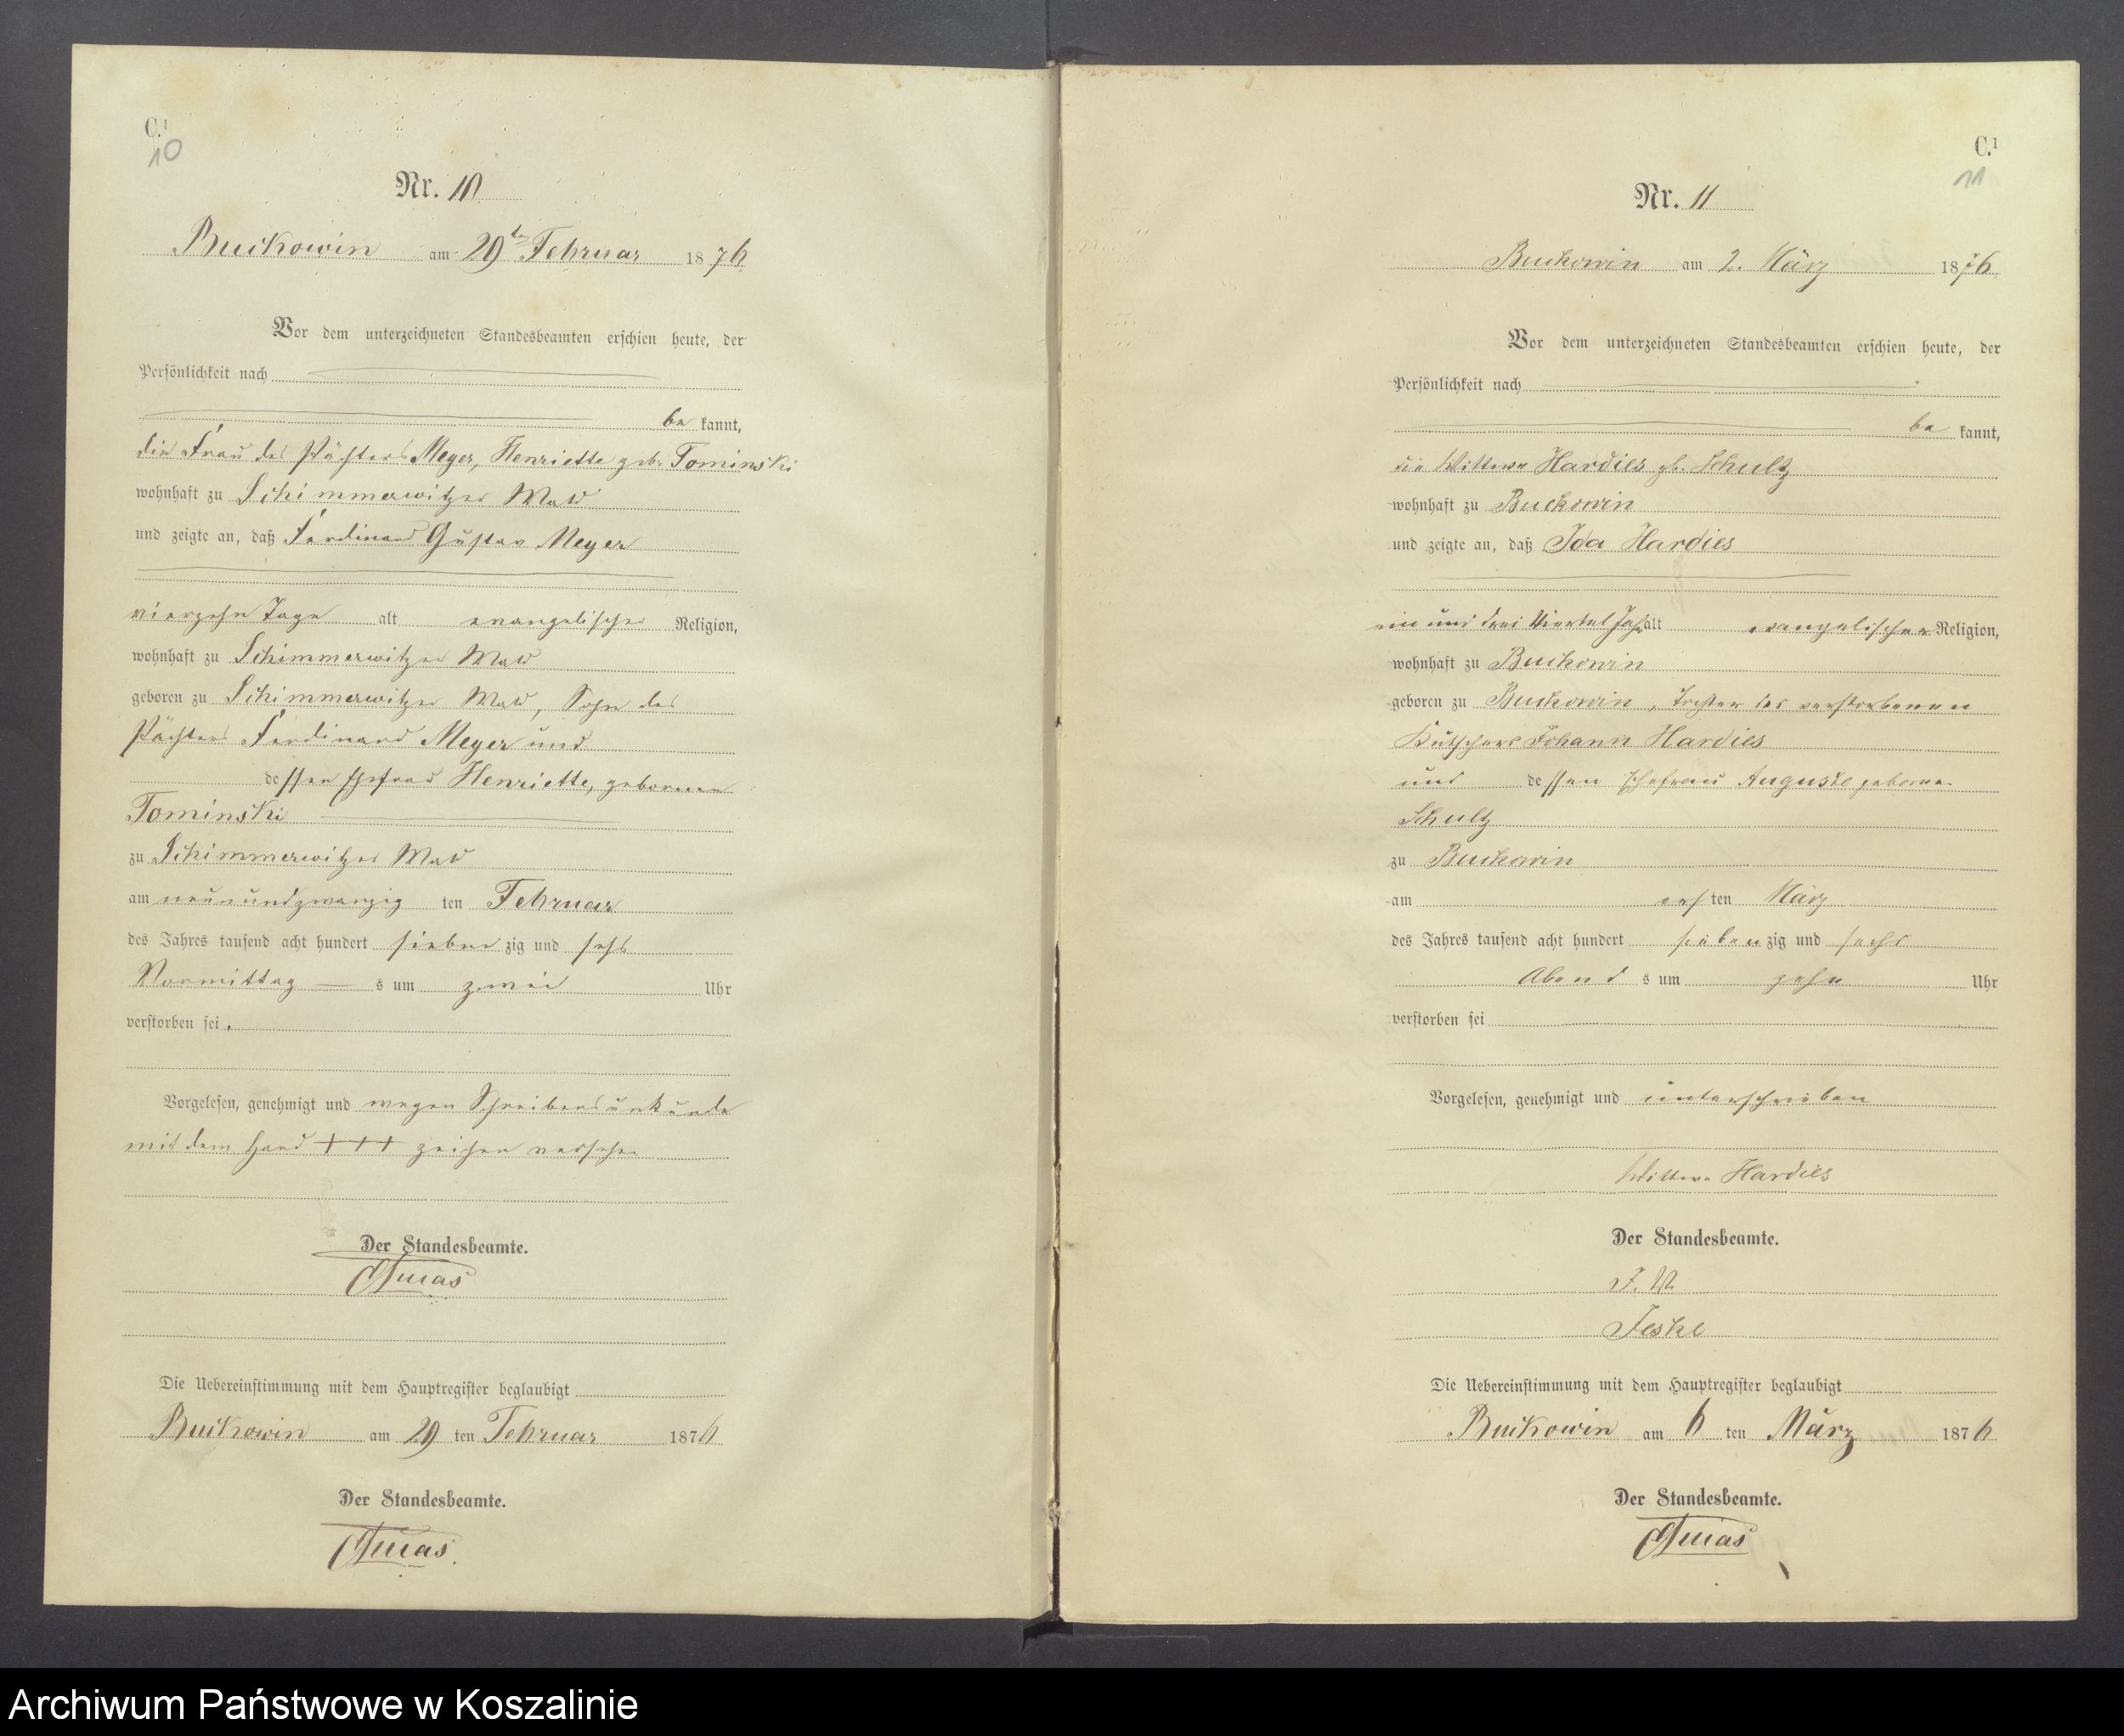 C.1
10
Nr. 10
Buckowin am 29ten Februar 1876
Vor dem unterzeichneten Standesbeamten erschien heute, der
Persönlichkeit nach
be kannt,
die Frau des Pächters Meyer, Henriette geb. Tominski
wohnhaft zu Schimmerwitzer
und zeigte an, daß Ferdinand Gustav Meyer
vierzehn Tage alt evangelischer Religion,
wohnhaft zu Schimmerwitzer
geboren zu Schimmerwitzer , Sohn des
Pächters Ferdinand Meyer und
dessen Ehefrau Henriette, geborenen
Tominski
zu Schimmerwitzer
am neunundzwanzig ten Februar
des Jahres tausend acht hundert sieben zig und sechs
Vormittag s um zwei Uhr
verstorben sei.
Vorgelesen, genehmigt und wegen Schreibensunkunde
mit dem Hand +++ zeichen versehen
Der Standesbeamte.
Die Uebereinstimmung mit dem Hauptregister beglaubigt
Buckowin am 29 ten Februar 1876
Der Standesbeamte.
C.1
11
Nr. 11
Buckowin am 2. März 1876
Vor dem unterzeichneten Standesbeamten erschien heute, der
Persönlichkeit nach
be kannt,
die Wittwe Hardies gb. Schultz
wohnhaft zu Buckowin
und zeigte an, daß Ida Hardies
ein und drei Viertel Jahr alt evangelischer Religion,
wohnhaft zu Buckowin
geboren zu Buckowin, Tochter des verstorbenen
Kutschers Johann Hardies
und dessen Ehefrau Auguste geborne
Schultz
zu Buckowin
am ersten März
des Jahres tausend acht hundert sieben zig und sechs
Abend s um zehn Uhr
verstorben sei
Vorgelesen, genehmigt und unterschrieben
Wittwe Hardies
Der Standesbeamte.
J. V.
Jeske
Die Uebereinstimmung mit dem Hauptregister beglaubigt
Buckowin am 6 ten März 1876
Der Standesbeamte.
Archiwum Państwowe w Koszalinie